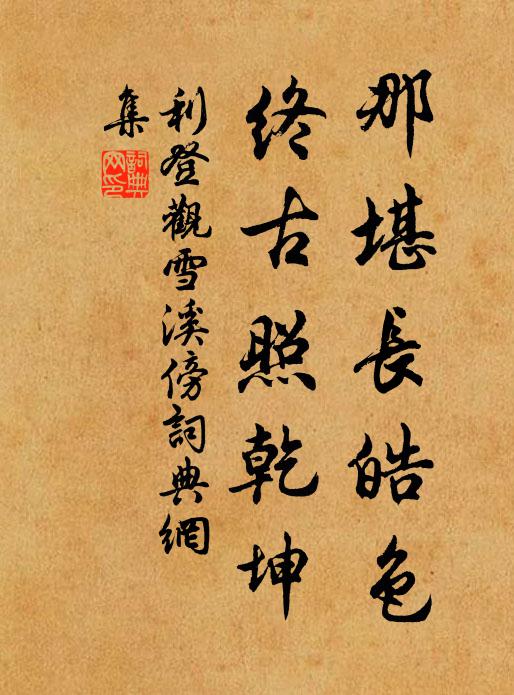 那堪長皓色
終古照乾坤
利登觀雪溪傍詞典網
集
詞典網印